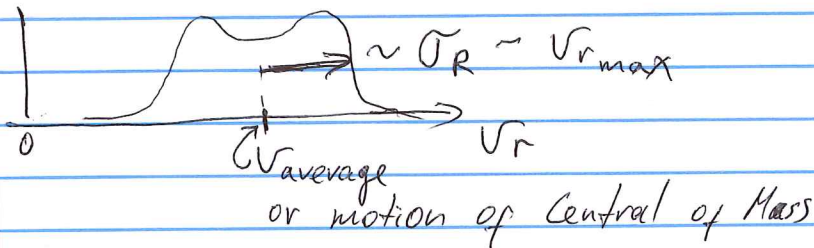 ~ σR ~ Vrmax
0
Vr
Vaverage
or motion of Central of Mass